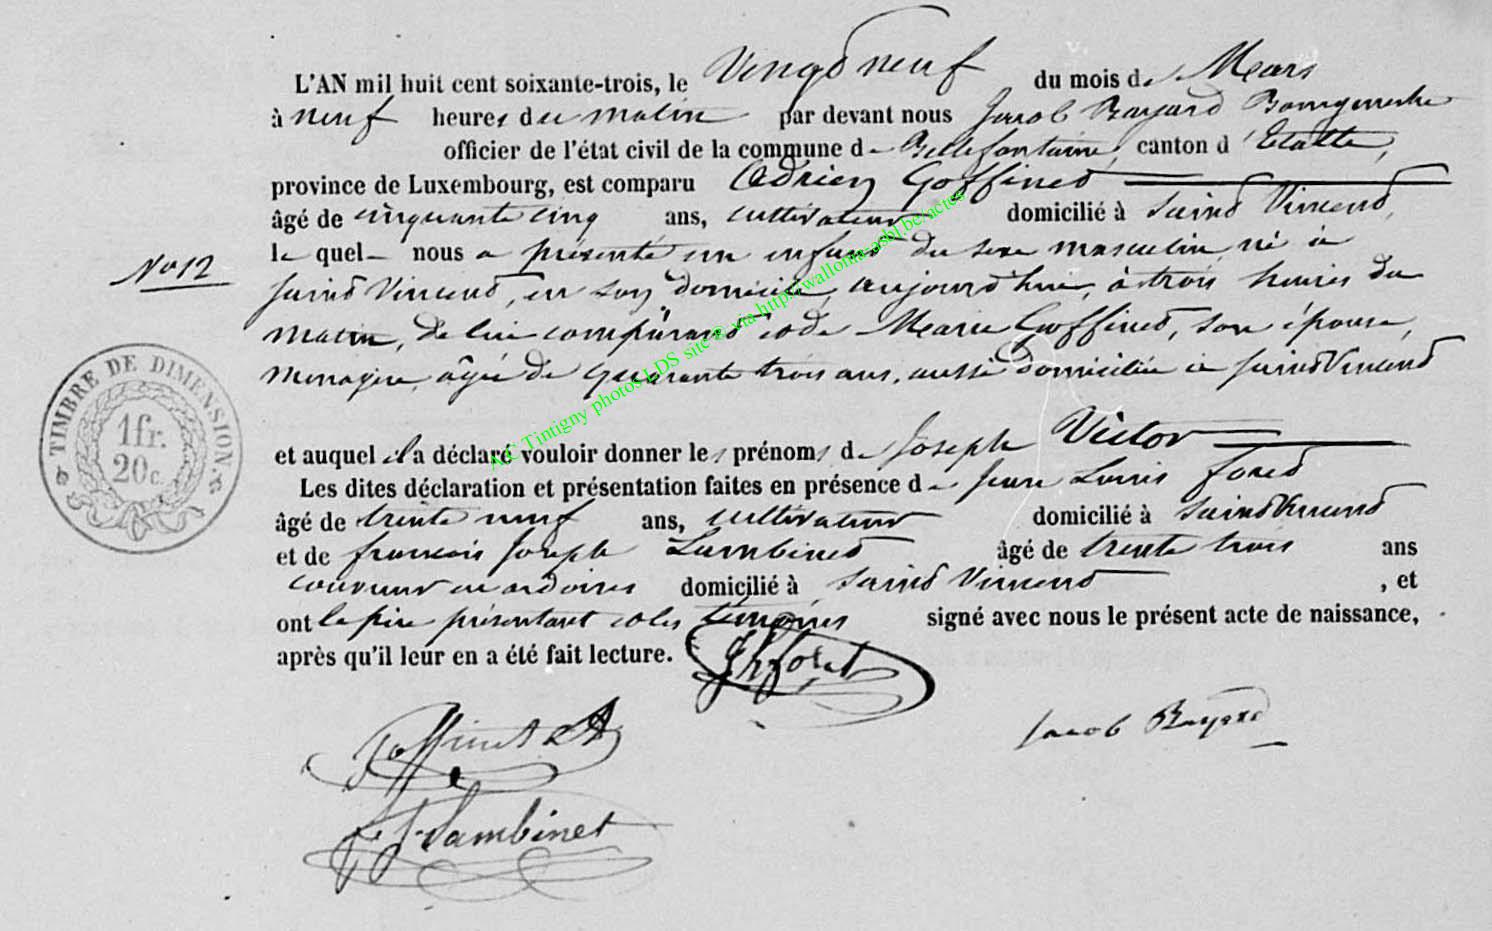 L'AN mil huit cent soixante-trois, le Vingt neuf du mois de Mars
à neuf heures du matin par devant nous Jacob Bayard Bourgmestre
officier de l'état civil de la commune de Bellefontaine, canton d'Etalle,
province de Luxembourg, est comparu Adrien Goffinet
âgé de cinquante cinq ans, cultivateur domicilié à Saint Vincent,
le quel nous a présenté un enfant du sexe masculin, né à
No 12
Saint Vincent, en son domicile, aujourd'hui, à trois heures du
matin, de lui comparant et de Marie Goffinet, son épouse,
menagère, âgée de quarante trois ans, aussi domiciliée à Saint Vincent
TIMBRE DE DIMENSION.
1 fr.
20 c.
et auquel il a déclaré vouloir donner les prénoms de Joseph Victor
Les dites déclaration et présentation faites en présence de Jean Louis Foret
âgé de trente neuf ans, cultivateur domicilié à Saint Vincent
et de françois Joseph Lambinet âgé de trente trois ans
couvreur en ardoises domicilié à Saint Vincent, et
ont le père présentant et les témoins signé avec nous le présent acte de naissance,
après qu'il leur en a été fait lecture.
JLForet
Goffinet A
Jacob Bayard
F J Lambinet
AC Tintigny photos LDS site @ via http://wallonia-asbl.be/actes